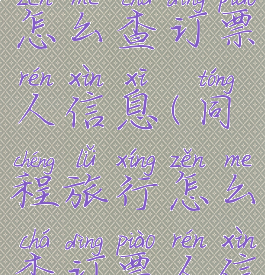 zěn me chá dìng piào
怎么查订票
rén xìn xī tóng
人信息(同
chéng lǚ xíng zěn me
程旅行怎么
chá dìng piào rén xìn
查订票人信